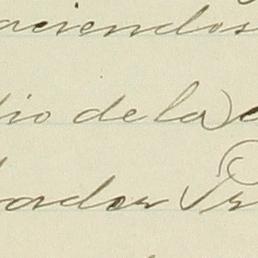 aciendos
dio de la
ador Pr